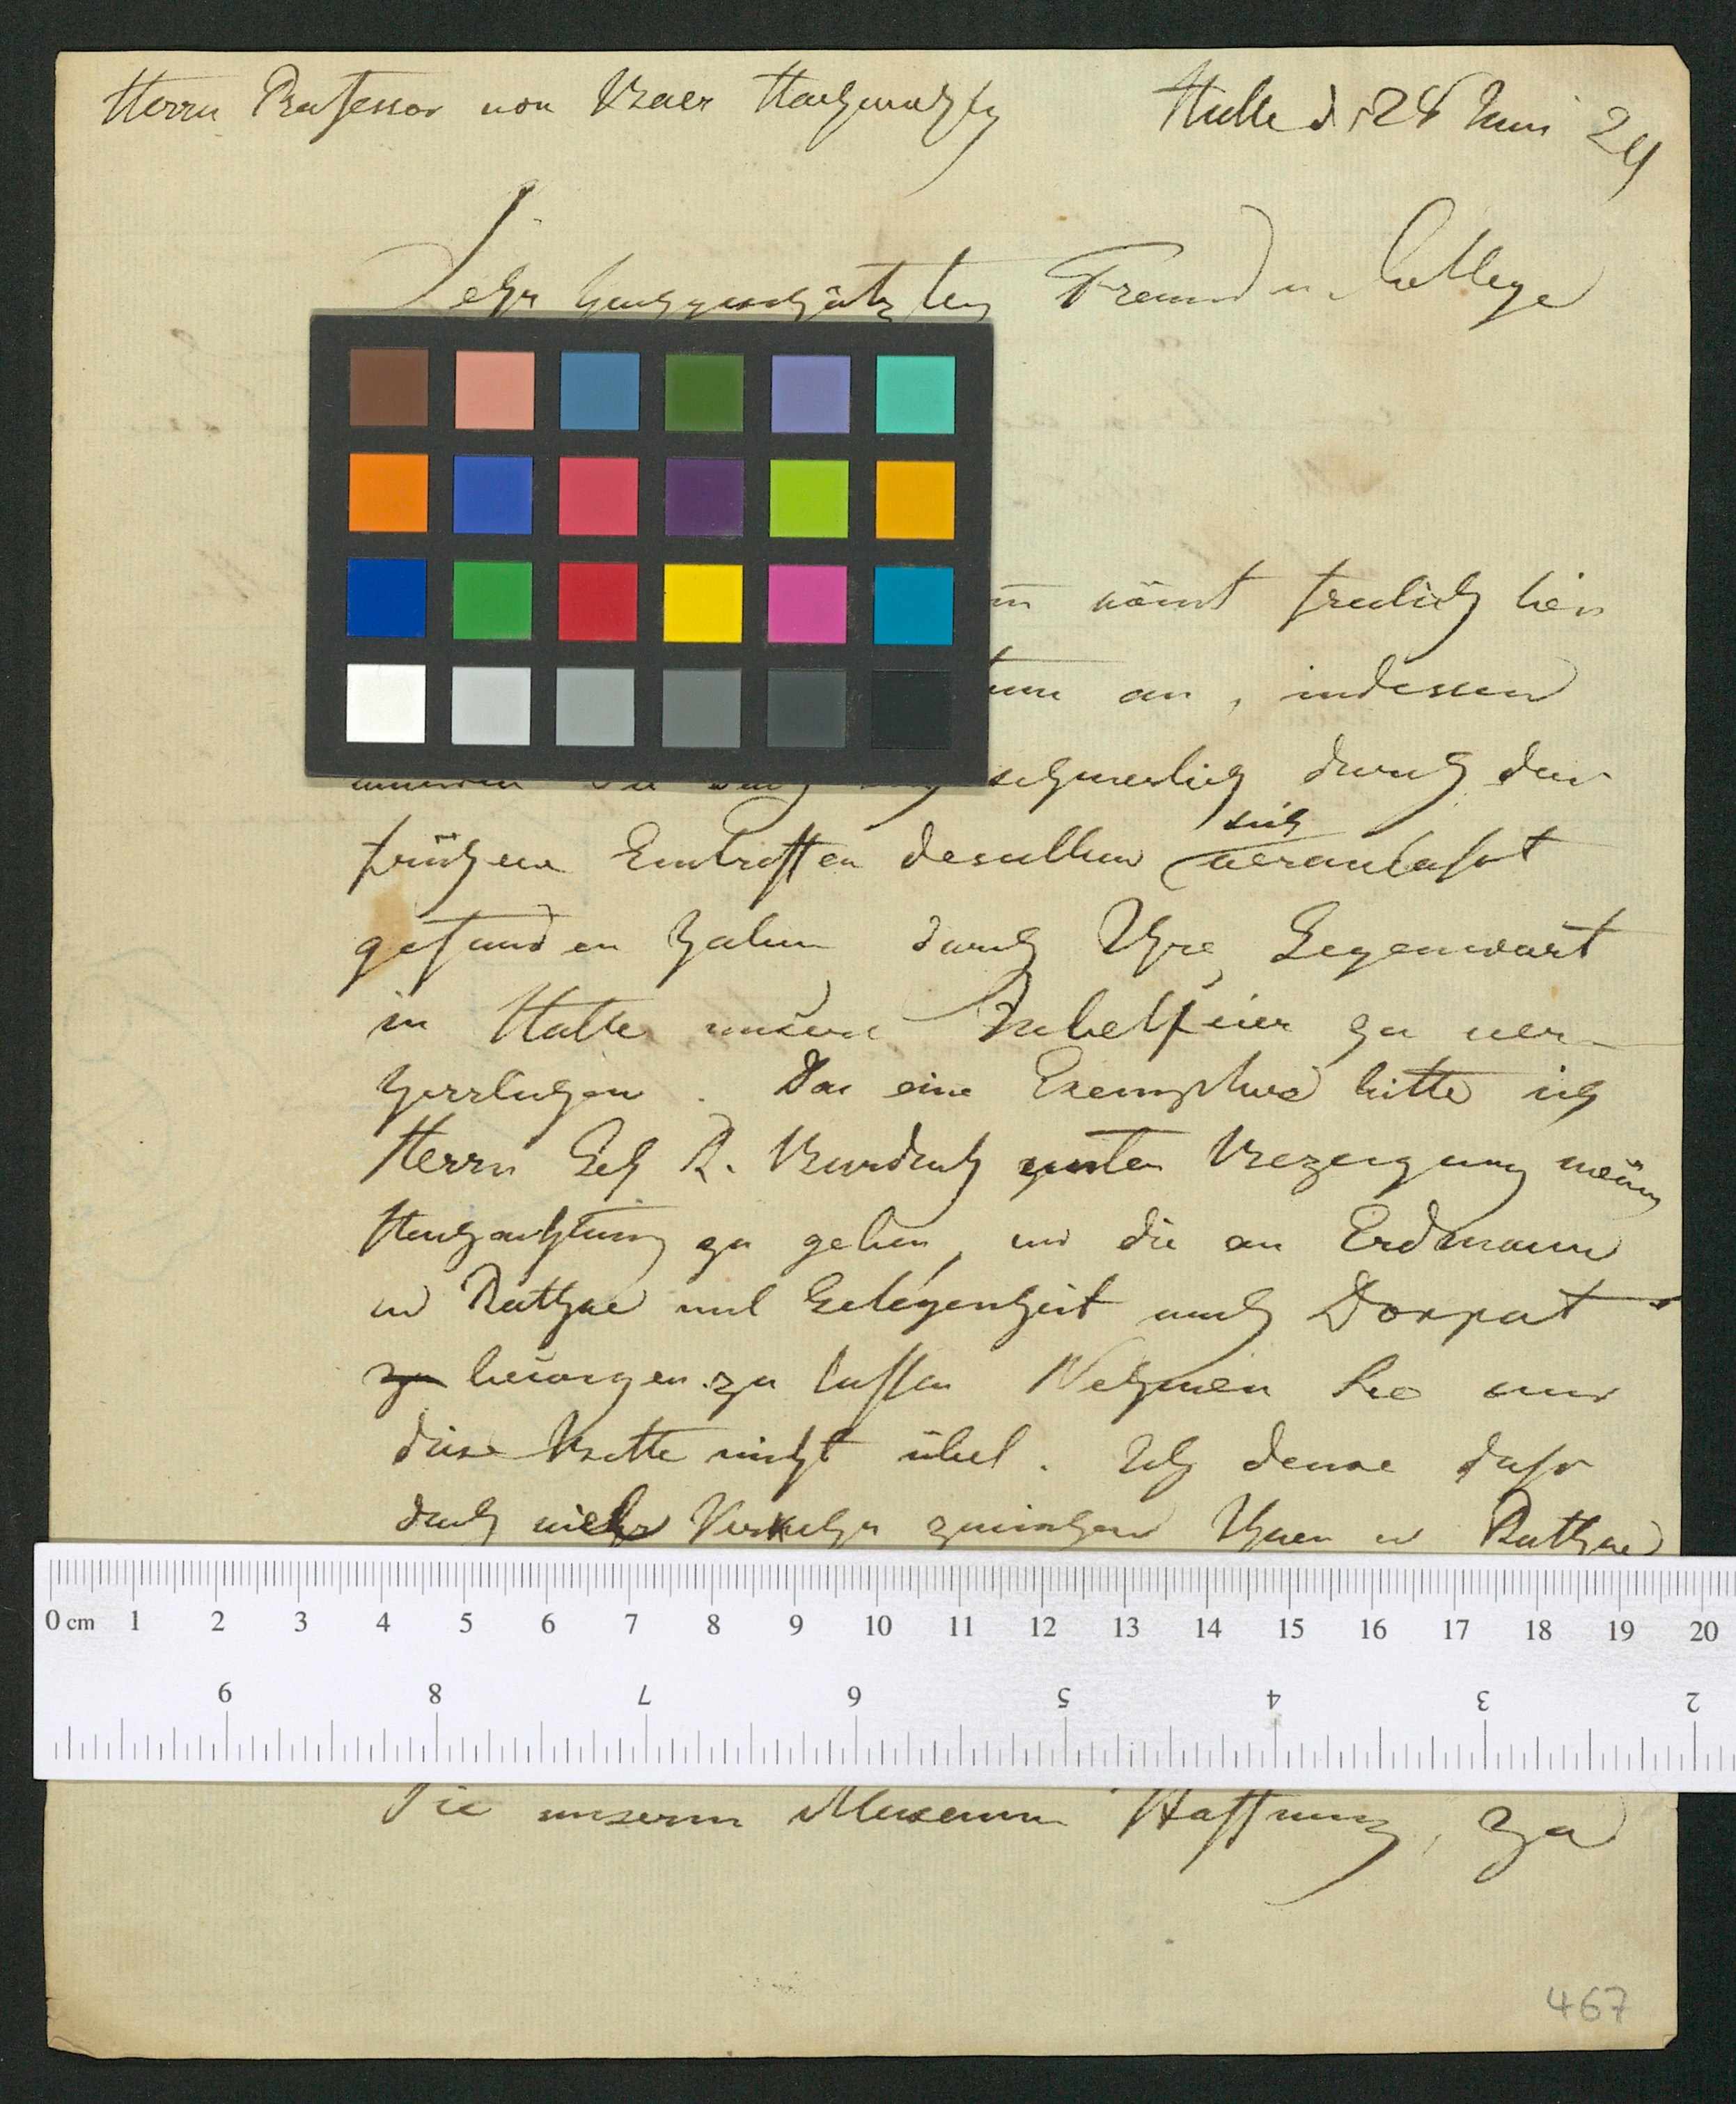 Herrn Professor von Baer Hochwohlg
Halle d 24 Juni 29
Sehr hochgeschätzter Freund u. College
kömt freilich hier
an, indessen
schwerlich durch das
frühere Eintreffen desselben sich veranlasst
gefunden haben durch Ihre Gegenwart
in Halle unsere Jubelfeier zu ver-
herrlichen. Das eine Exemplar bitte ich
Herrn Geh R. Burdach unter Bezeugung meiner
Hochachtung zu geben, und die an Erdmann
u Rathke mit Gelegenheit nach Dorpat
zu besorgen zu lassen Nehmen Sie mir
diese Bitte nicht übel. Ich denke dass
doch mehr Verkehr zwischen Ihnen u Rathke
0 cm 1 2 3 4 5 6 7 8 9 10 11 12 13 14 15 16 17 18 19 20
9 8 7 6 5 4 3 2
Sie unserm Museum Hoffnung, zu
467